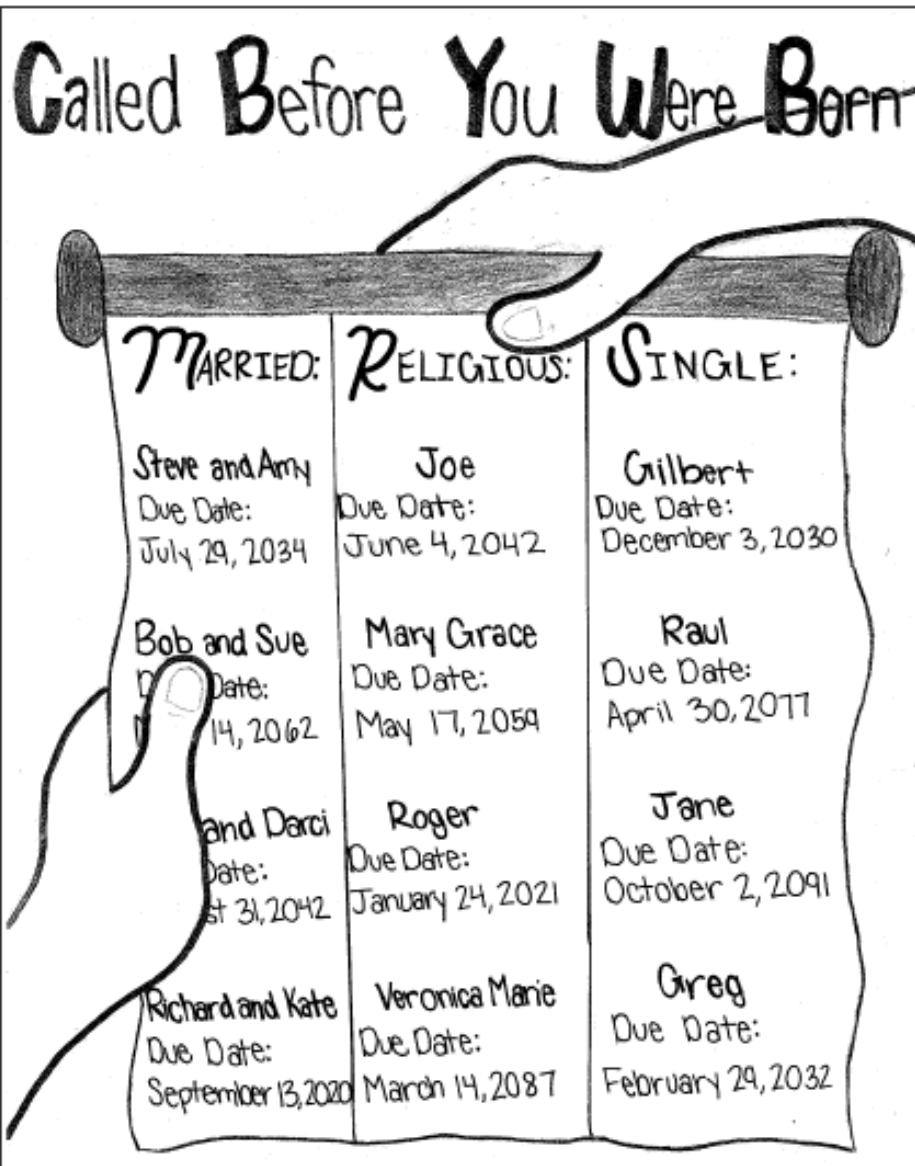 Called Before You Were Born
MARRIED:
Steve and Amy
Due Date:
July 29, 2034
Bob and Sue
Date:
14, 2062
and Darci
Date:
st 31, 2042
Richard and Kate
Due Date:
September 13, 2020
RELIGIOUS:
Joe
Due Date:
June 4, 2042
Mary Grace
Due Date:
May 17, 2059
Roger
Due Date:
January 24, 2021
Veronica Marie
Due Date:
March 14, 2087
SINGLE:
Gilbert
Due Date:
December 3, 2030
Raul
Due Date:
April 30, 2077
Jane
Due Date:
October 2, 2091
Greg
Due Date:
February 29, 2032